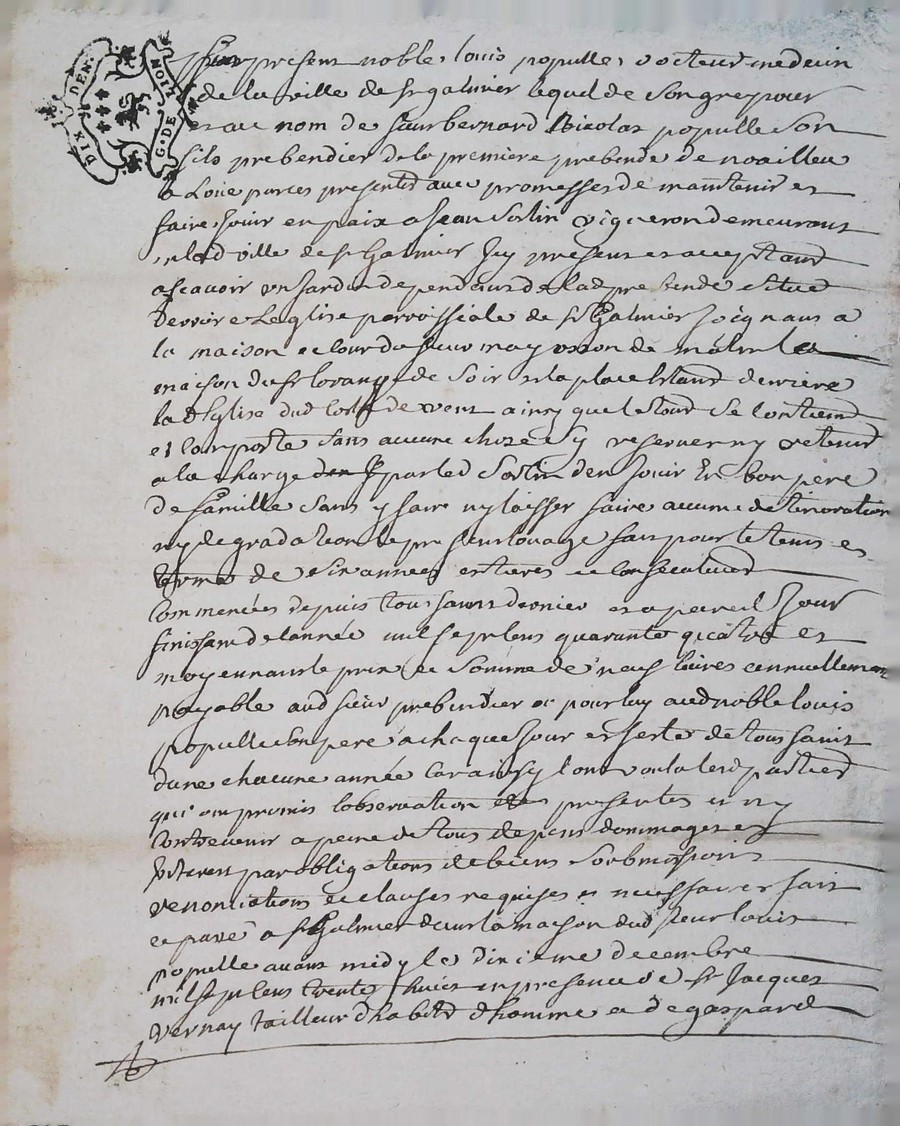 DIX DEN. G. DE LION
fut present noble louis populle docteur medecin
de la ville de st galmier lequel de son gre pour
et au nom de sieur bernard Nicolas populle son
fils prebendier de la premiere prebende de noailleu
a Loüé par ces presentes avec promesses de maintenir et
faire jouir en paix a jean Sorlin vigneron demeurant
en lad ville de st Galmier Icy present et acceptant
ascavoir un jardin dependant de lad prebende situé
derriere Leglise parroissiale de st Galmier joignant a
la maison et cour du sieur mayosson de matin la
maison du sr de soir et la place Estant derriere
lad Eglise dud Coste de vent ainsy que le tout se contient
et comporte sans aucune choze sy reserver ny retenir
a la charge par led Sorlin den jouir En bon pere
de famille sans y faire ny laisser faire aucune deterioration
ny degradation le present louage fait pour le tems et
terme de six années entieres et consecutives
Commencées depuis toussaints dernier et a pareil Jour
finissant de lannée mil sept cens quarante quatre et
moyennant le prix et somme de neuf livres annuellement
payable aud sieur prebendier ou pour luy aud noble louis
populle son pere a chaque jour et feste de toussaint
dune chacune année Car ainsy lont voulu lesd parties
qui ont promis lobservation des presentes et ny
Contrevenir a peine de tous depens dommages et
Interets par obligations de biens soubmissions
renontiations et clauses requises et necessaires fait
et passé a st Galmier dans la maison dud sieur louis
populle avant midy le dixieme decembre
mil sept cens trente huict en presence de sr Jacques
Vernay tailleur dhabits dhomme et de gaspard